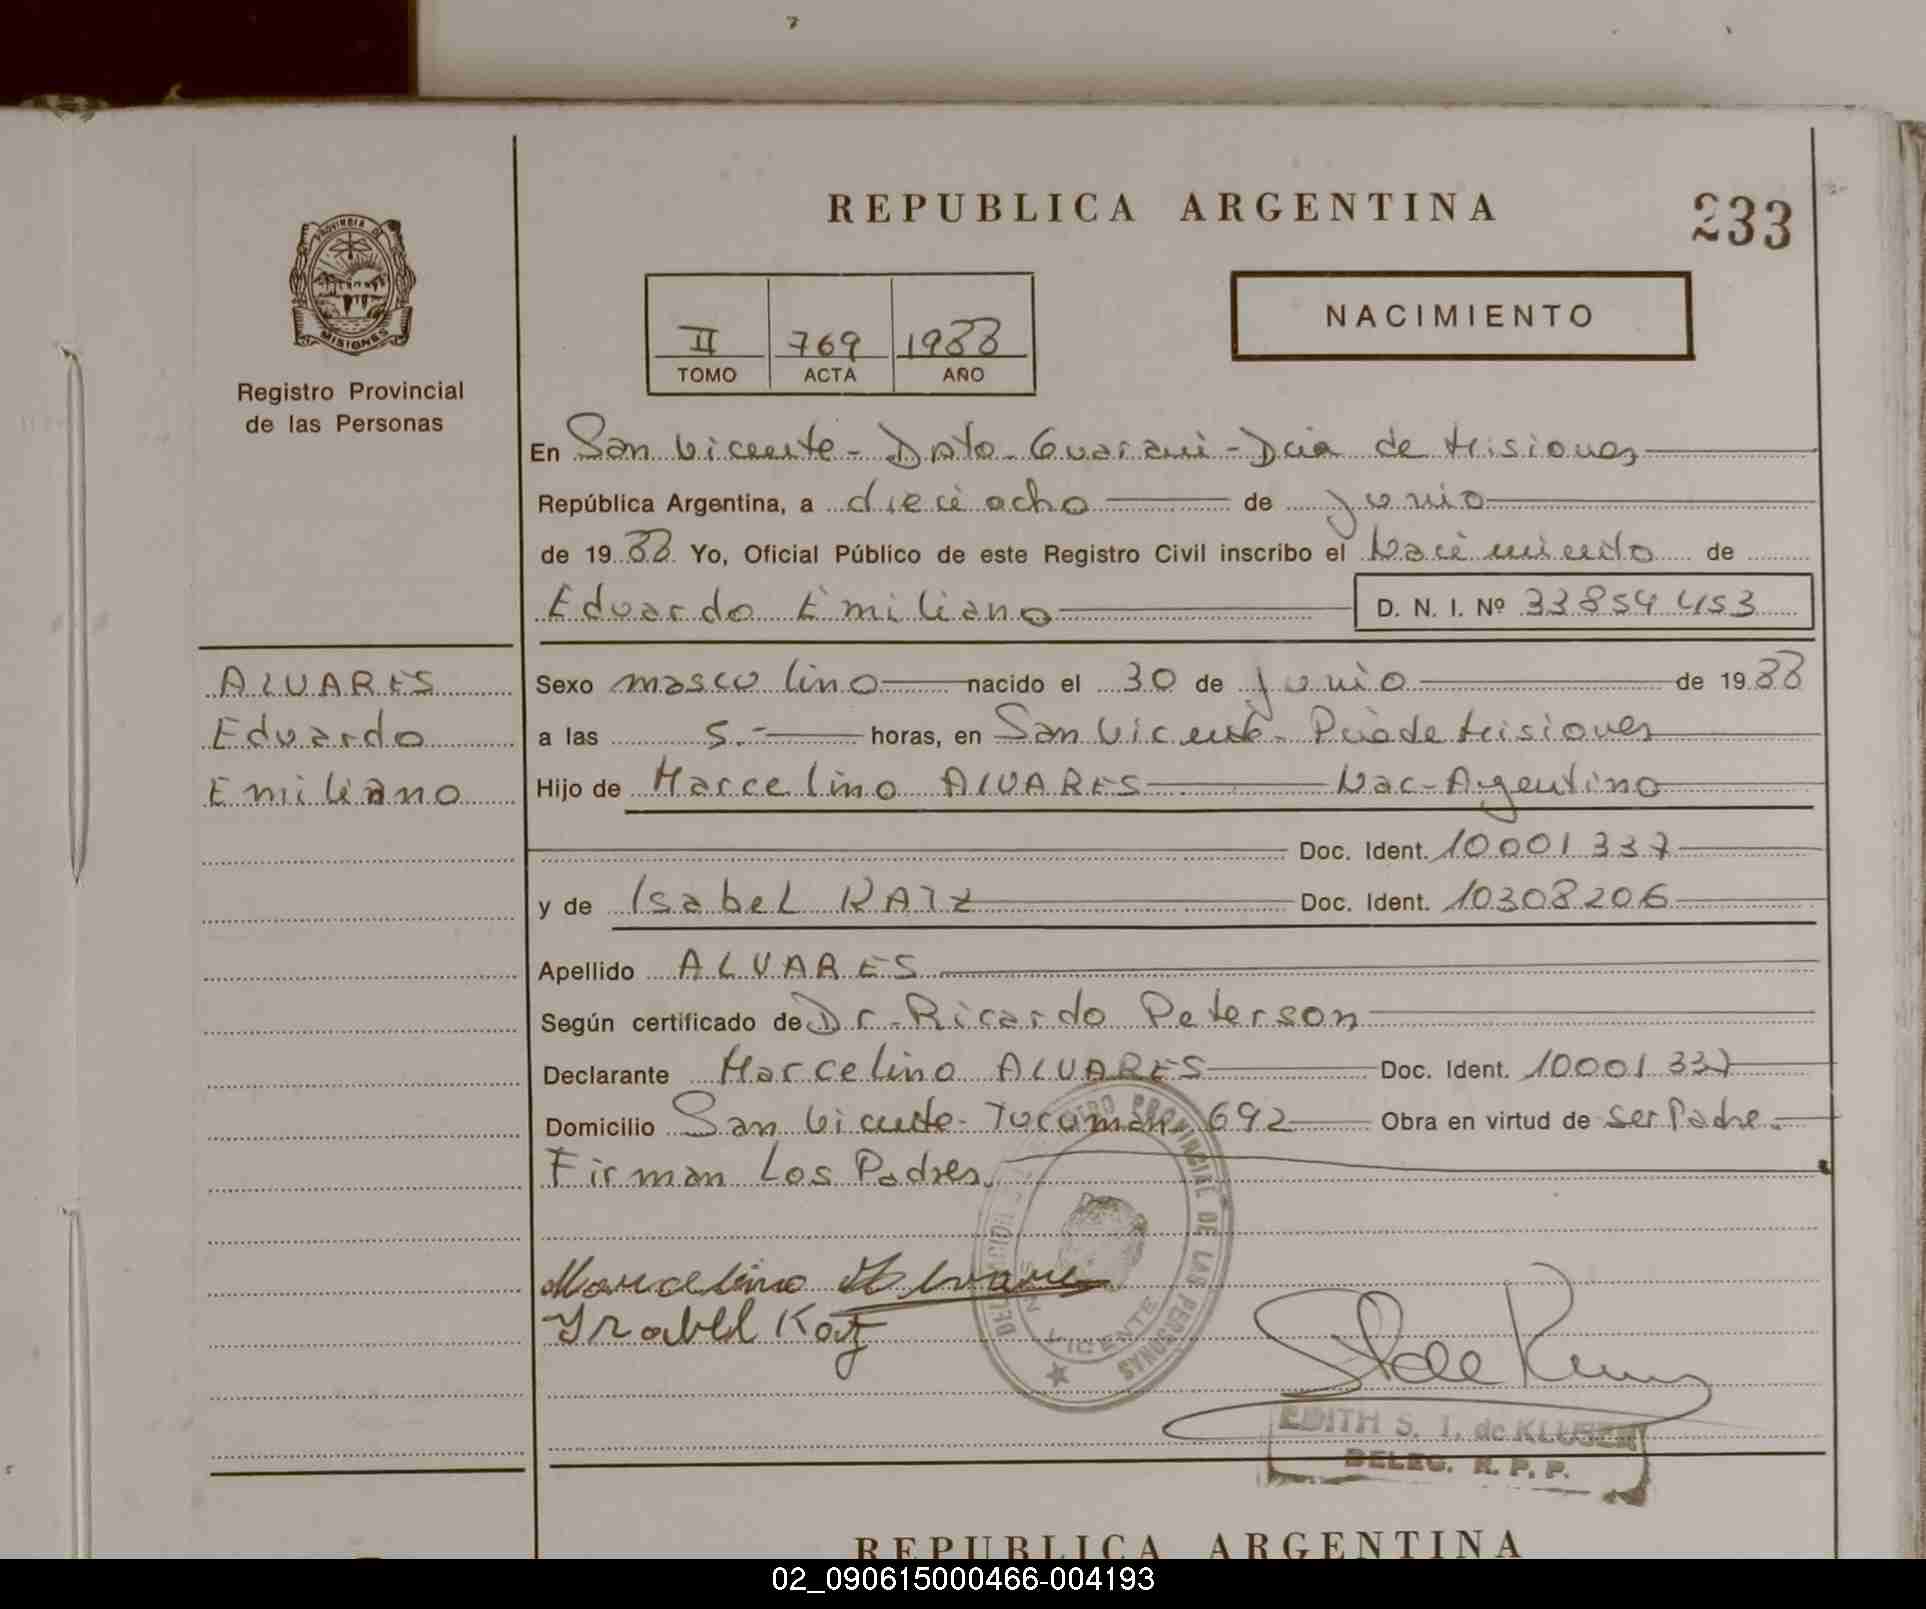 233
REPUBLICA ARGENTINA
PROVINCIA DE
MISIONES
Registro Provincial
de las Personas
II 769 1988
TOMO ACTA AÑO
NACIMIENTO
En San Vicente - Dpto. Guaraní - Pcia de Misiones
República Argentina, a dieciocho de junio
de 1988 Yo, Oficial Público de este Registro Civil inscribo el Nacimiento de
Eduardo Emiliano D. N. I. Nº 33854453
ALVARES
Eduardo
Emiliano
Sexo masculino nacido el 30 de junio de 1988
a las 5.- horas, en San Vicente - Pcia de Misiones
Hijo de Marcelino ALVARES Nac-Argentino
Doc. Ident. 10001337
y de Isabel KATZ Doc. Ident. 10308206
Apellido ALVARES
Según certificado de Dr. Ricardo Peterson
Declarante Marcelino ALVARES Doc. Ident. 10001337
Domicilio San Vicente - Tucumán 692 Obra en virtud de ser Padre.
Firman Los Padres.
Marcelino Alvares
Isabel Katz
VICENTE
EDITH S. T. de KLUSER
DELEG. R. P. P.
REPUBLICA ARGENTINA
02_090615000466-004193